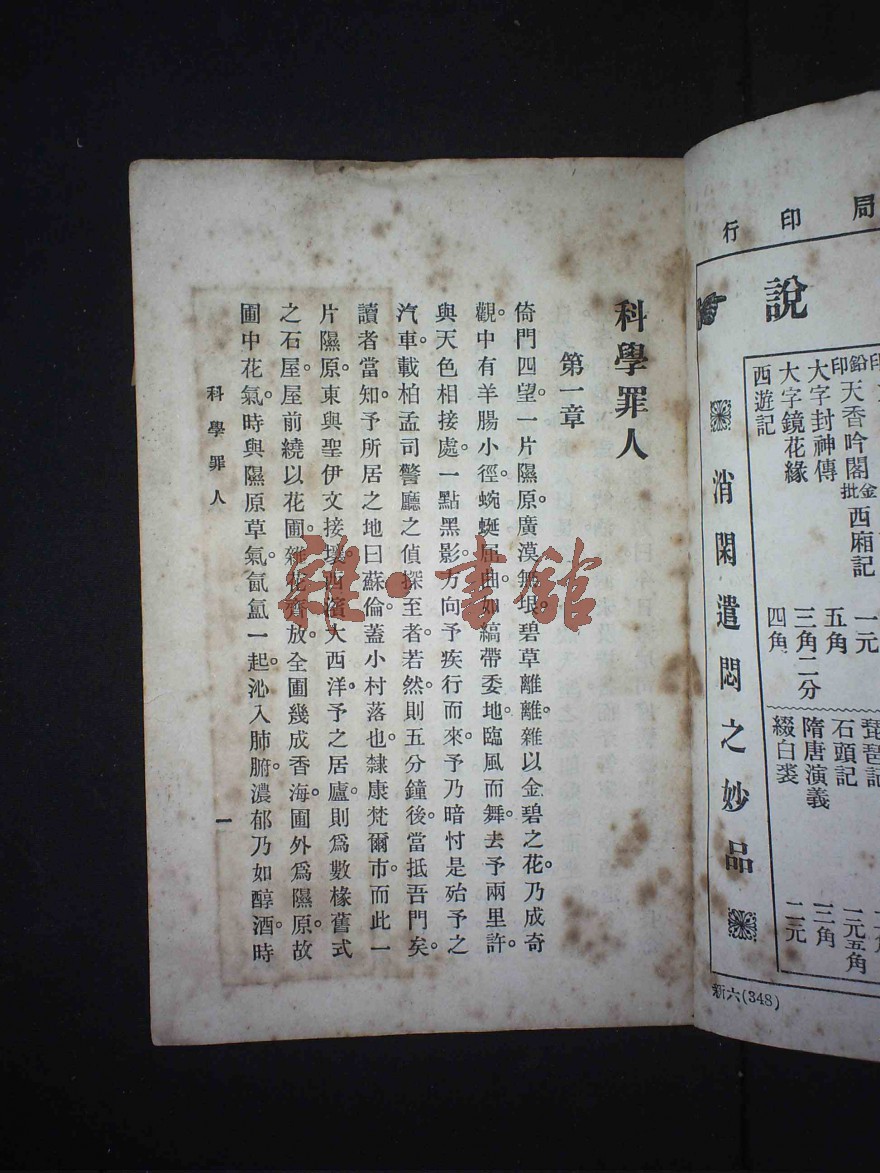 局印行
說
印
鉛印天香吟閣
金批西廂記
一元
大字封神傳
五角
大字鏡花緣
三角二分
西遊記
四角
琵琶記
石頭記
一元五角
隋唐演義
三角
綴白裘
二元
消閑遣悶之妙品
新六(348)
科學罪人
第一章
倚門四望。一片隰原。廣漠無垠。碧草離離。雜以金碧之花。乃成奇
觀。中有羊腸小徑。蜿蜒屈曲。如縞帶委地。臨風而舞。去予兩里許。
與天色相接處。一點黑影。方向予疾行而來。予乃暗忖是殆予之
汽車。載柏孟司警廳之偵探至者。若然則五分鐘後。當抵吾門矣。
讀者當知。予所居之地曰蘇倫。蓋小村落也。隸康梵爾市。而此一
片隰原。東與聖伊文接壤。西濱大西洋。予之居廬。則爲數椽舊式
之石屋。屋前繞以花圃。雜花齊放。全圃幾成香海。圃外爲隰原。故
圃中花氣。時與隰原草氣。氤氳一起。沁入肺腑。濃郁乃如醇酒。時
科學罪人
一
雜·書館